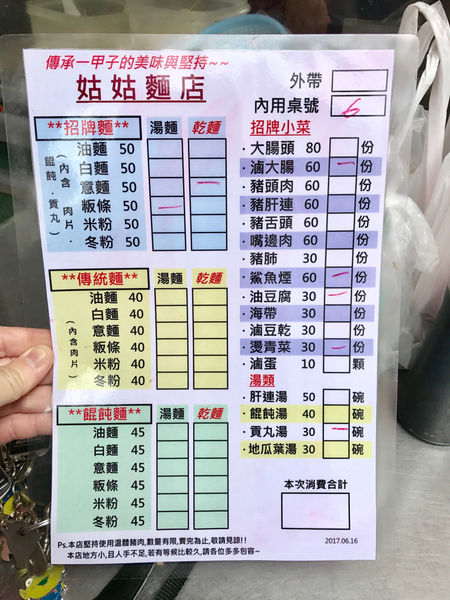 傳承一甲子的美味與堅持~~
姑姑麵店
外帶
內用桌號 6
**招牌麵** 湯麵 乾麵
(內含 肉片.餛飩.貢丸)
油麵 50
白麵 50
意麵 50 一
粄條 50 一
米粉 50
冬粉 50
**傳統麵** 湯麵 乾麵
(內含肉片)
油麵 40
白麵 40
意麵 40
粄條 40
米粉 40
冬粉 40
**餛飩麵** 湯麵 乾麵
油麵 45
白麵 45
意麵 45
粄條 45
米粉 45
冬粉 45
招牌小菜
·大腸頭 80 份
·滷大腸 60 一 份
·豬頭肉 60 份
·豬肝連 60 份
·豬舌頭 60 份
·嘴邊肉 60 份
·豬肺 30 份
·鯊魚煙 60 一 份
·油豆腐 30 一 份
·海帶 30 份
·滷豆乾 30 份
·燙青菜 30 一 份
·滷蛋 10 顆
湯類
·肝連湯 50 碗
·餛飩湯 40 碗
·貢丸湯 30 一 碗
·地瓜葉湯 30 碗
本次消費合計
Ps.本店堅持使用溫體豬肉,數量有限,賣完為止,敬請見諒!!
本店地方小,且人手不足,若有等候比較久,請各位多多包容~
2017.06.16